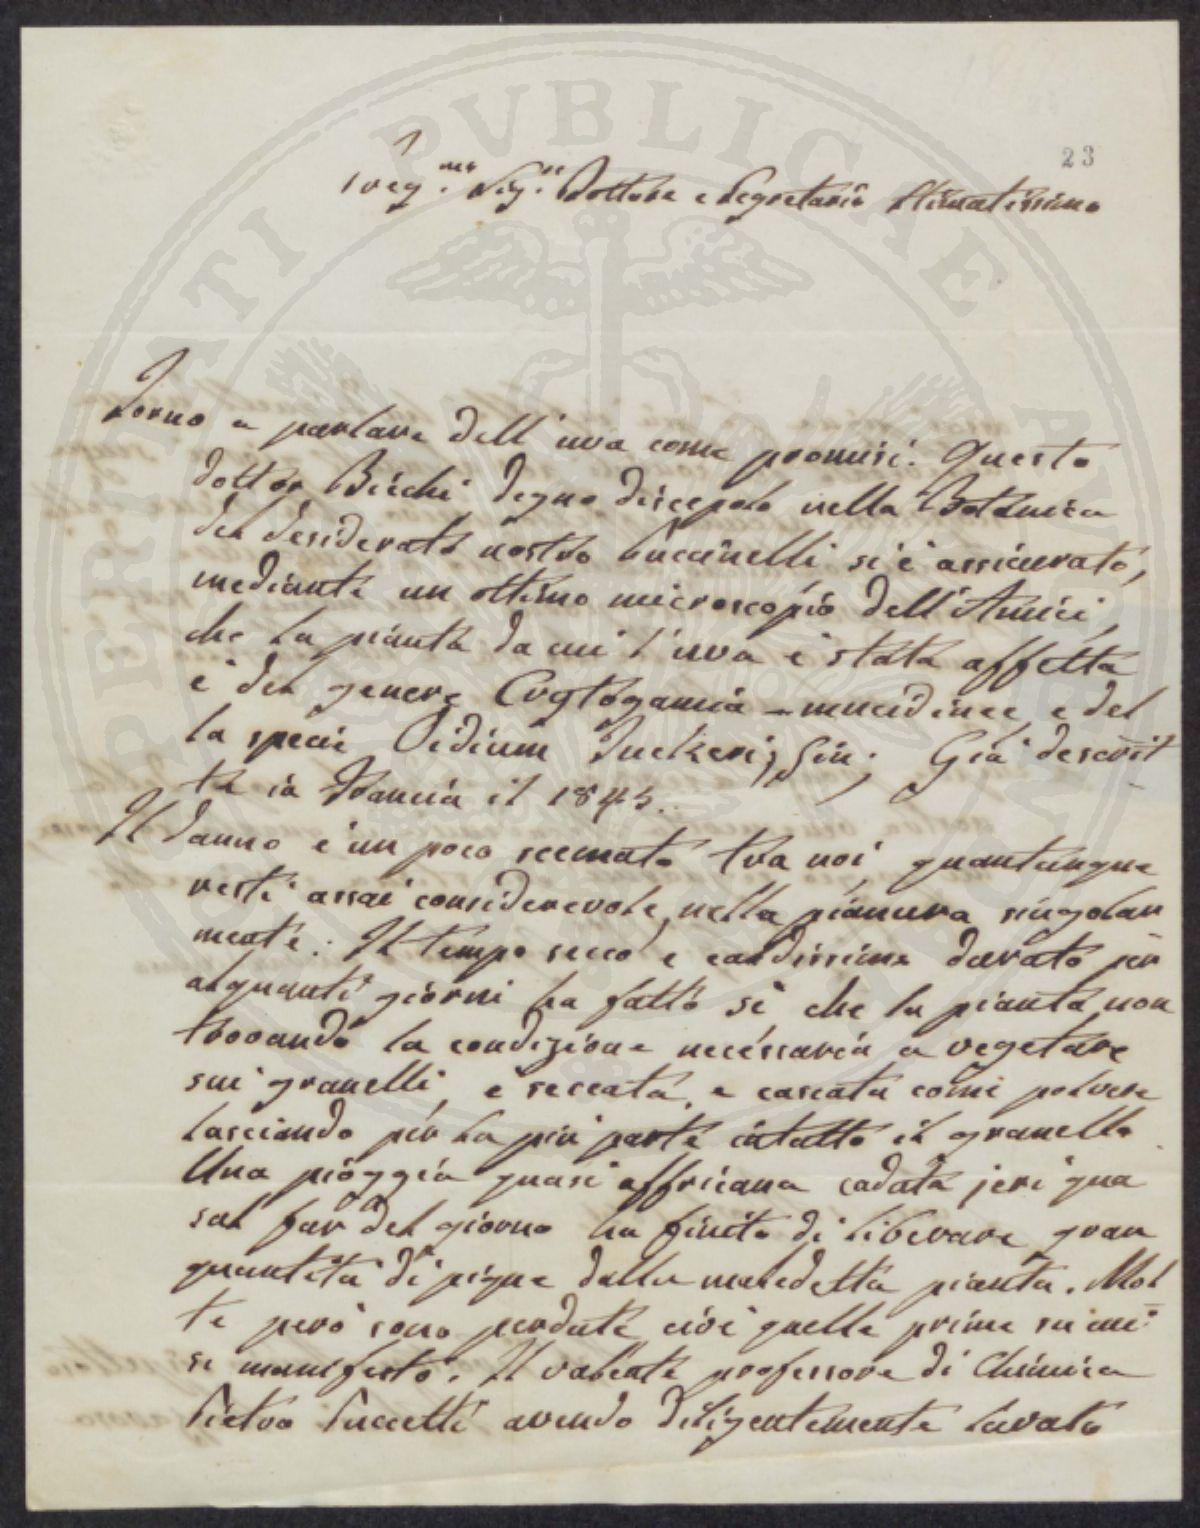 23
Preg.mo Sig.re Dottore e Segretario Stimatissimo
Torno a parlare dell'uva come promisi. Questo
dottor Bicchi degno discepolo nella Botanica
del desiderato nostro Puccinelli si è assicurato,
mediante un ottimo microscopio dell'Amici,
che la pianta da cui l'uva è stata affetta
è del genere Crytogamia - mucidinee, e del
la specie Oidium Tuckeri; Già descrit
ta in Francia il 1845.
Il danno è un poco scemato tra noi, quantunque
resti assai considerevole, nella pianura singolar
mente. Il tempo secco e caldissimo durato per
alquanti giorni ha fatto sì che la pianta non
trovando la condizione necessaria a vegetare
sui granelli, è seccata, e cascata come polvere
lasciando per la più parte intatto il granello.
Una pioggia quasi affricana caduta jeri qua
sul far del giorno ha finito di liberare gran
quantità di pigne dalla maledetta pianta. Mol
te però sono perdute cioè quelle prime su cui
si manifestò. Il valente professore di Chimica
Pietro Puccetti avendo diligentemente lavato
PERITATI PVBLICAE